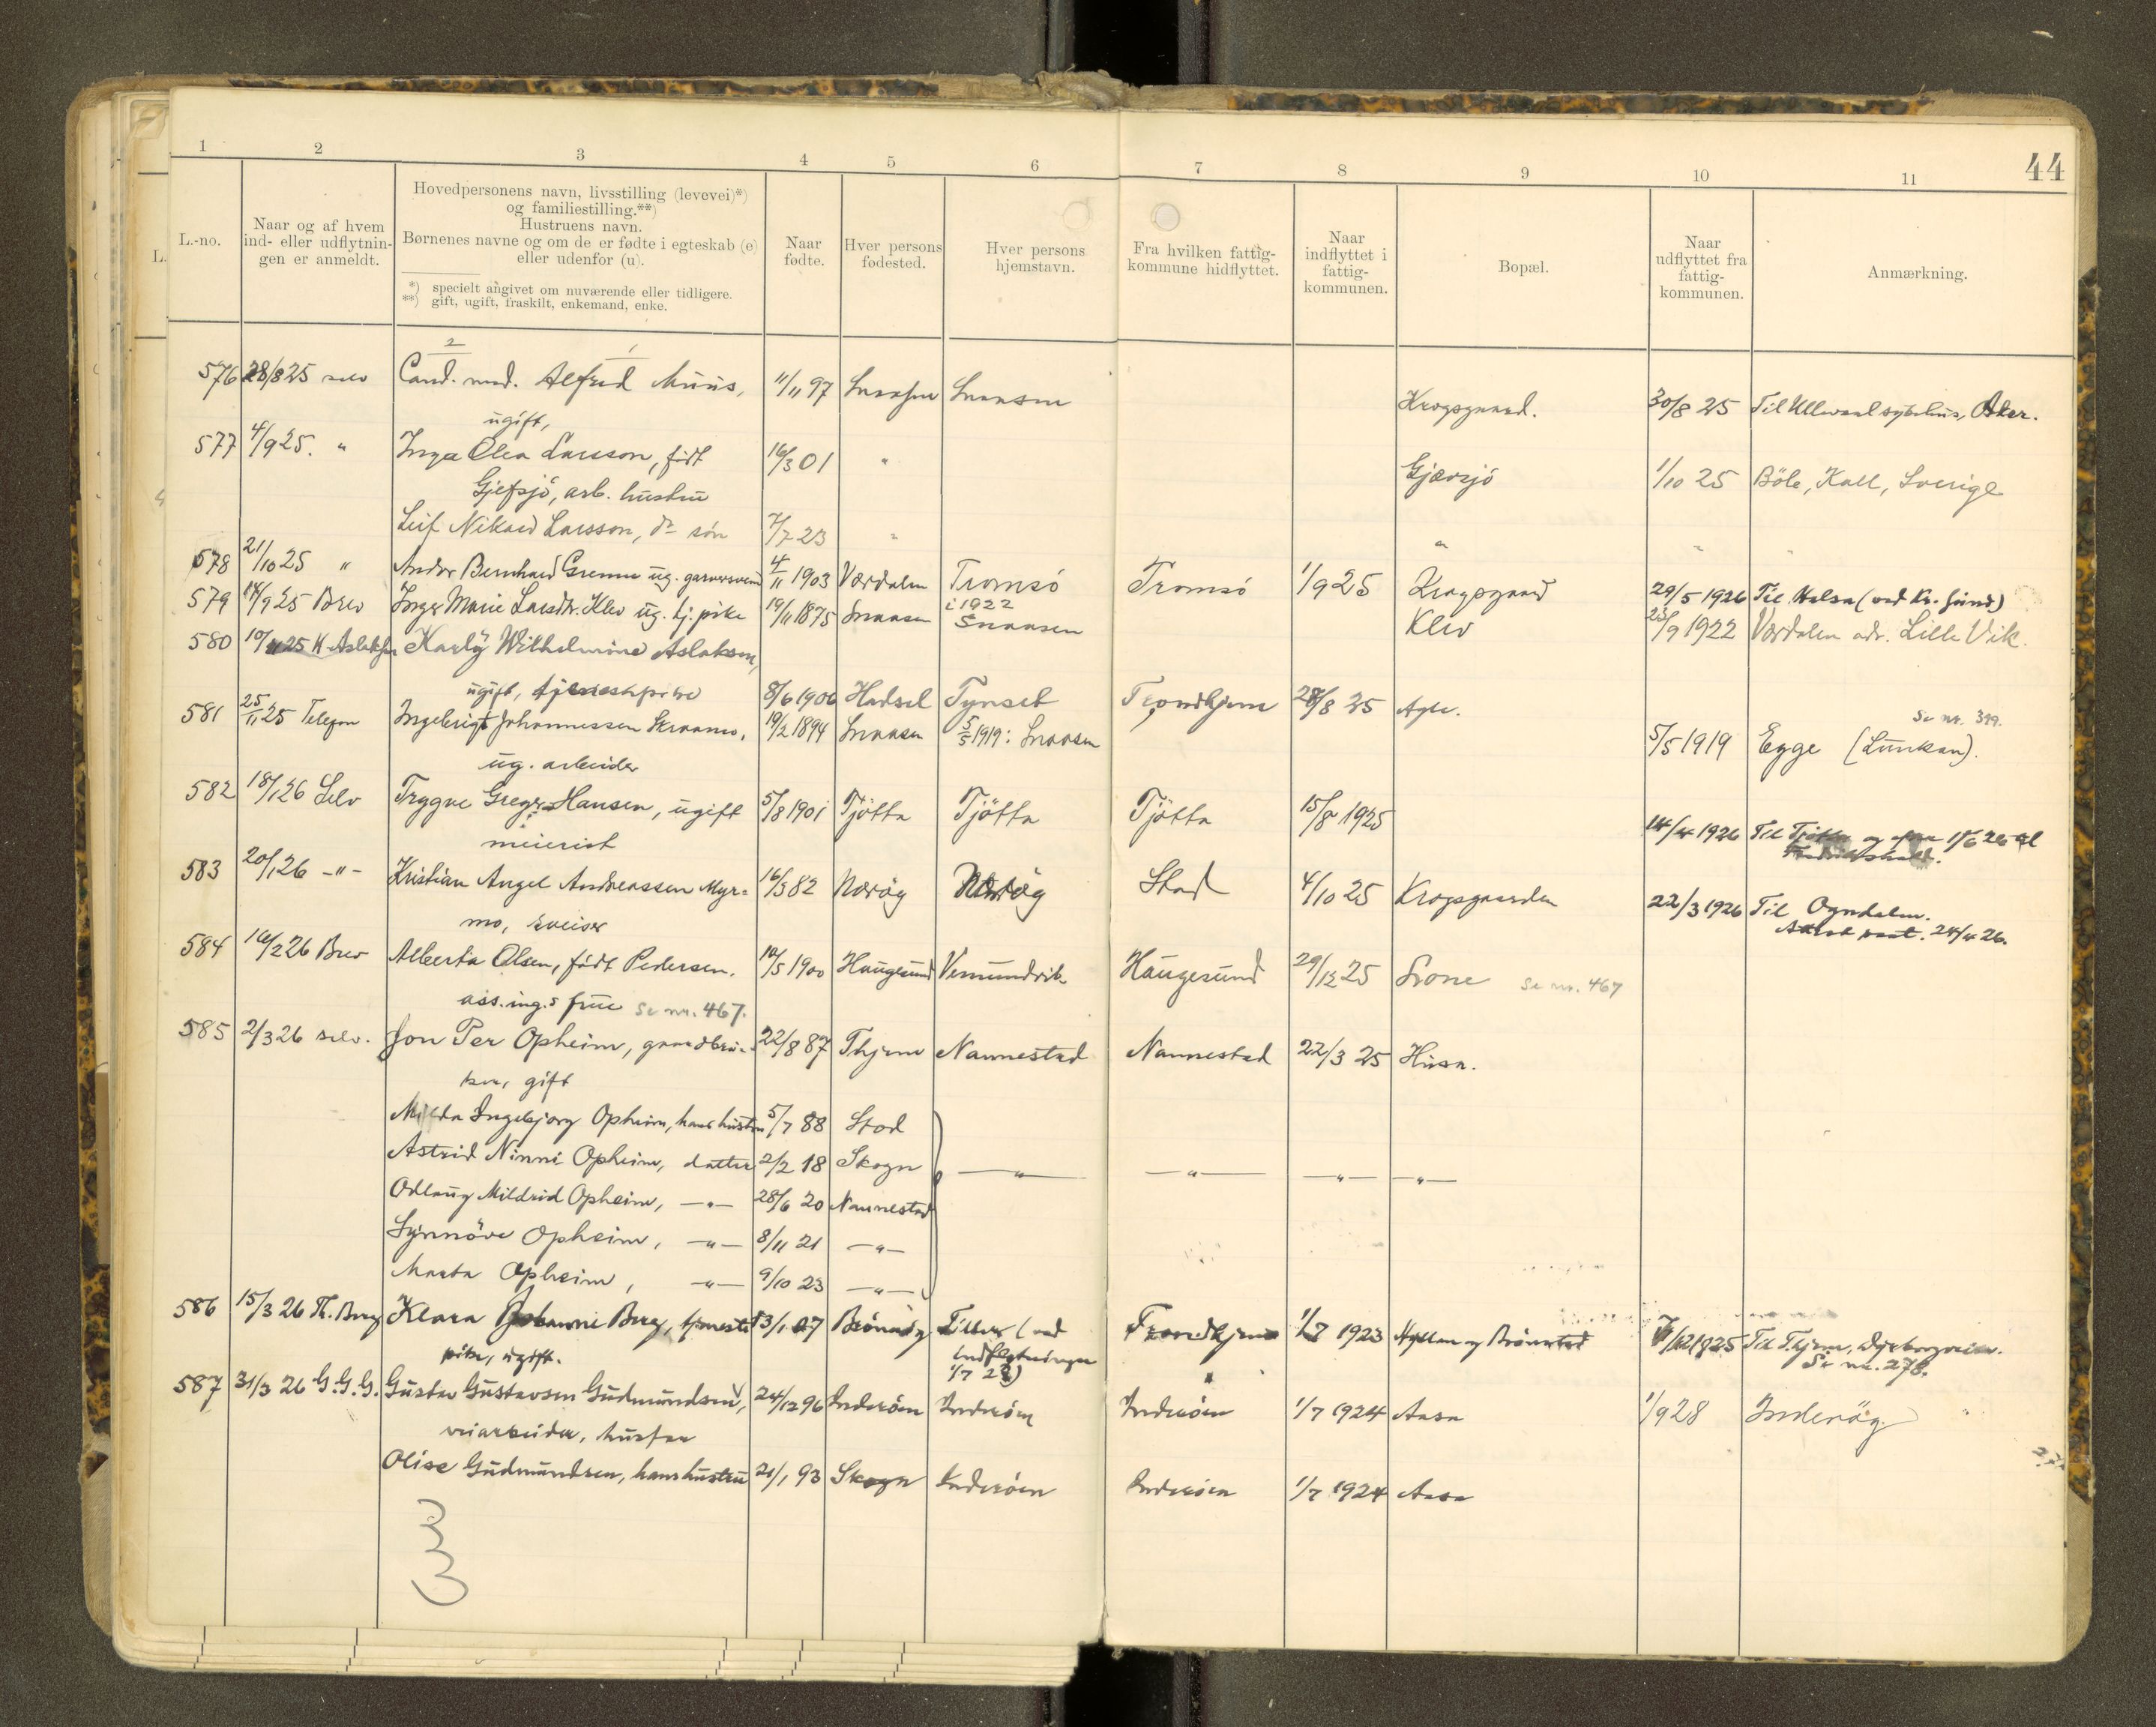 44
1 2 3 4 5 6 7 8 9 10 11
L.-no.
Naar og af hvem
ind- eller udflytnin-
gen er anmeldt.
Hovedpersonens navn, livsstilling (levevei)*)
og familiestilling.**)
Hustruens navn.
Børnenes navne og om de er fødte i egteskab (e)
eller udenfor (u).
*) specielt angivet om nuværende eller tidligere.
**) gift, ugift, fraskilt, enkemand, enke.
Naar
fødte.
Hver persons
fødested.
Hver persons
hjemstavn.
Fra hvilken fattig-
kommune hidflyttet.
Naar
indflyttet i
fattig-
kommunen.
Bopæl.
Naar
udflyttet fra
fattig-
kommunen.
Anmærkning.
L.
2 1
576 28/8 25 selv Cand. med. Alfred Muus, 11/11 97 Snaasen Snaasen Krogsgaard. 30/8 25 Til Ullevaal sykehus, Aker.
ugift,
577 4/9 25. " Inga Olea Larsson, född 16/3 01 " Gjævsjö 1/10 25 Böle, Kall, Sverige
Gjefsjö, arb. hustru
Leif Nikard Larsson, ds sön 7/7 23 " " " "
578 21/10 25 " Andor Bernhard Grenne ug. garversvend 4/11 1903 Værdalen Tromsö Tromsö 1/9 25 Krogsgaard 29/5 1926 Til Halsa (ved Kr.sund)
579 14/9 25 Brev Inger Marie Larsdtr. Klev ug. tj. pike 19/11 1875 Snaasen i 1922 Snaasen Klev 25/9 1922 Værdalen adr. Lille Vik.
580 10/11 25 K. Aslaksen Karly Wilhelmine Aslaksen,
ugift, tjenestepike 8/6 1906 Hadsel Tynset Trondhjem 28/8 25 Agle.
581 25/11 25 Telefon Ingebrigt Johannessen Skraamo, 19/2 1894 Snaasen 5/5 1919: Snaasen 5/5 1919 Egge (Lunkan). Se nr. 399.
ug. arbeider
582 18/1 26 Selv Trygve Greger Hansen, ugift 5/8 1901 Tjötta Tjötta Tjötta 15/8 1925 14/4 1926 Til Tjötta og fra 1/6 26 til
meierist Fredrikshald.
583 20/1 26 -"- Kristian Angel Andreassen Myr= 16/3 82 Nærög Nærög Stod 4/10 25 Krogsgaarden 22/3 1926 Til Ogndalen.
mo, sveiser 24/4 26.
584 16/2 26 Brev Alberta Olsen, född Pedersen. 10/5 1900 Haugesund Vemundvik Haugesund 29/12 25 Grone Se nr. 467
ass. ing.s frue Se nr. 467.
585 2/3 26 selv. Jon Per Opheim, gaardbru- 22/8 87 Thjem Nannestad Nannestad 22/3 25 Husa.
ker, gift
Milda Ingebjorg Opheim, hans hustru 5/7 88 Stod
Astrid Ninni Opheim, datter 2/2 18 Skogn —"— —"— —"— —"—
Odlaug Mildrid Opheim, —"— 28/6 20 Nannestad
Synnöve Opheim, —"— 8/11 21 —"—
Marta Opheim, —"— 9/10 23 —"—
586 15/3 26 Th. Berg Klara Johanni Berg, tjeneste 13/1 07 Brönnöy Tiller (ved Trondhjem 1/7 1923 Hyllan og Brönstad 7/12 1925 Til Thjem, Dyrborgveien.
pike, ugift. indflytningen Se nr. 278.
1/7 23)
587 31/3 26 G.G.G. Gustav Gustavsen Gudmundsen, 24/12 96 Inderöen Inderöen Inderöen 1/7 1924 Aasa 1/9 28 Inderöy.
veiarbeider, husfar
Olise Gudmundsen, hans hustru 21/1 93 Skogn Inderöen Inderöen 1/7 1924 Aasa